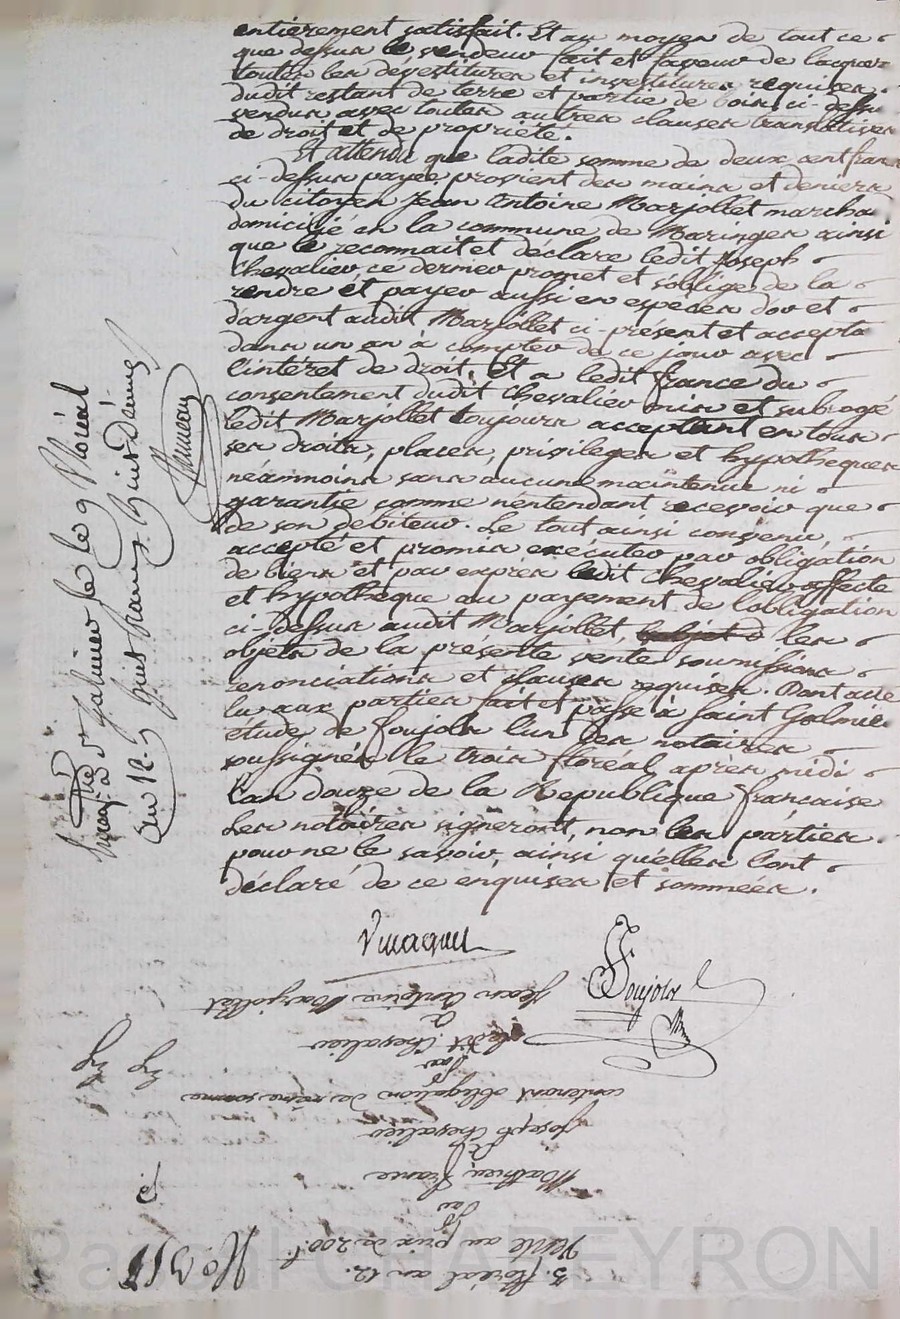 entièrement satisfait. Et au moyen de tout ce
que dessus le vendeur fait et faveur de lacquer
toutes les dévestitures et investitures requises
dudit restant de terre et partie de bois ci-dessu
vendus avec toutes autres clauses translatives
de droit et de propriété.
Et attendu que ladite somme de deux cent franc
ci-dessus payée provient des mains et deniers
du citoyen Jean Antoine Marjollet marcha
domicilié en la commune de Maringes ainsi
que le reconnait et déclare ledit Joseph
Chevalier ce dernier promet et s'oblige de la
rendre et payer aussi en espèces d'or et
d'argent audit Marjollet ci-présent et accepta
dans un an a compter de ce jour avec
l'intéret de droit. Et a ledit france du
consentement dudit Chevalier mis et subrogé
ledit Marjollet toujours acceptant en tous
ses droits, places, privileges et hypotheques
néammoins sans aucune maintenue ni
garantie comme n'entendant recevoir que
de son débiteur. Le tout ainsi convenu,
accepté et promis exécuter par obligation
de biens et par exprès ledit Chevalier affecte
et hypothèque au payement de l'obligation
ci-dessus audit Marjollet, les
objets de la présente vente soumissions
renonciations et clauses requises. Dont acte
lu aux parties fait et passé à Saint Galmier
étude de Foujols l'un des notaires
soussignés le trois floréal après midi
l'an douze de la Republique française
Les notaires signeront, non les parties
pour ne le savoir, ainsi qu'elles l'ont
déclaré de ce enquises et sommées.
Foujols
à St Galmier le le 9 floréal
an 12
huit francs huit Décimes
3. floréal an 12.
Vente au prix de 200 f.
Par
Mathieu france
à
Joseph Chevalier
contenant obligation de même somme
Par
Ledit Chevalier
à
Jean Antoine Marjollet
Pascal CHABEYRON